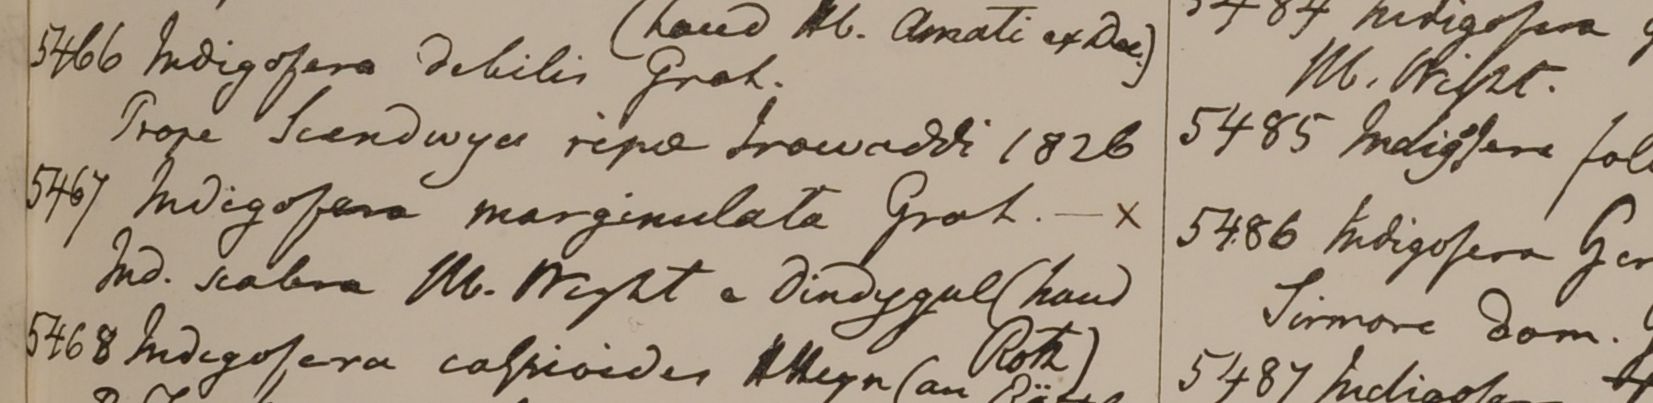 (haud Hb. Amati ex Dec.)
5466 Indigofera debilis Grah.
Prope Scendwye ripae Irawaddi 1826
5467 Indigofera marginulata Grah. — x
Ind. scabra Hb. Wight e Dindygul (haud
Roth)
5468 Indigofera Hb Heyn (an
5484 Indigofera
Hb. Wight.
5485 Indigofera
5486 Indigofera Ger
Sirmore Dom.
5487 Indigofer